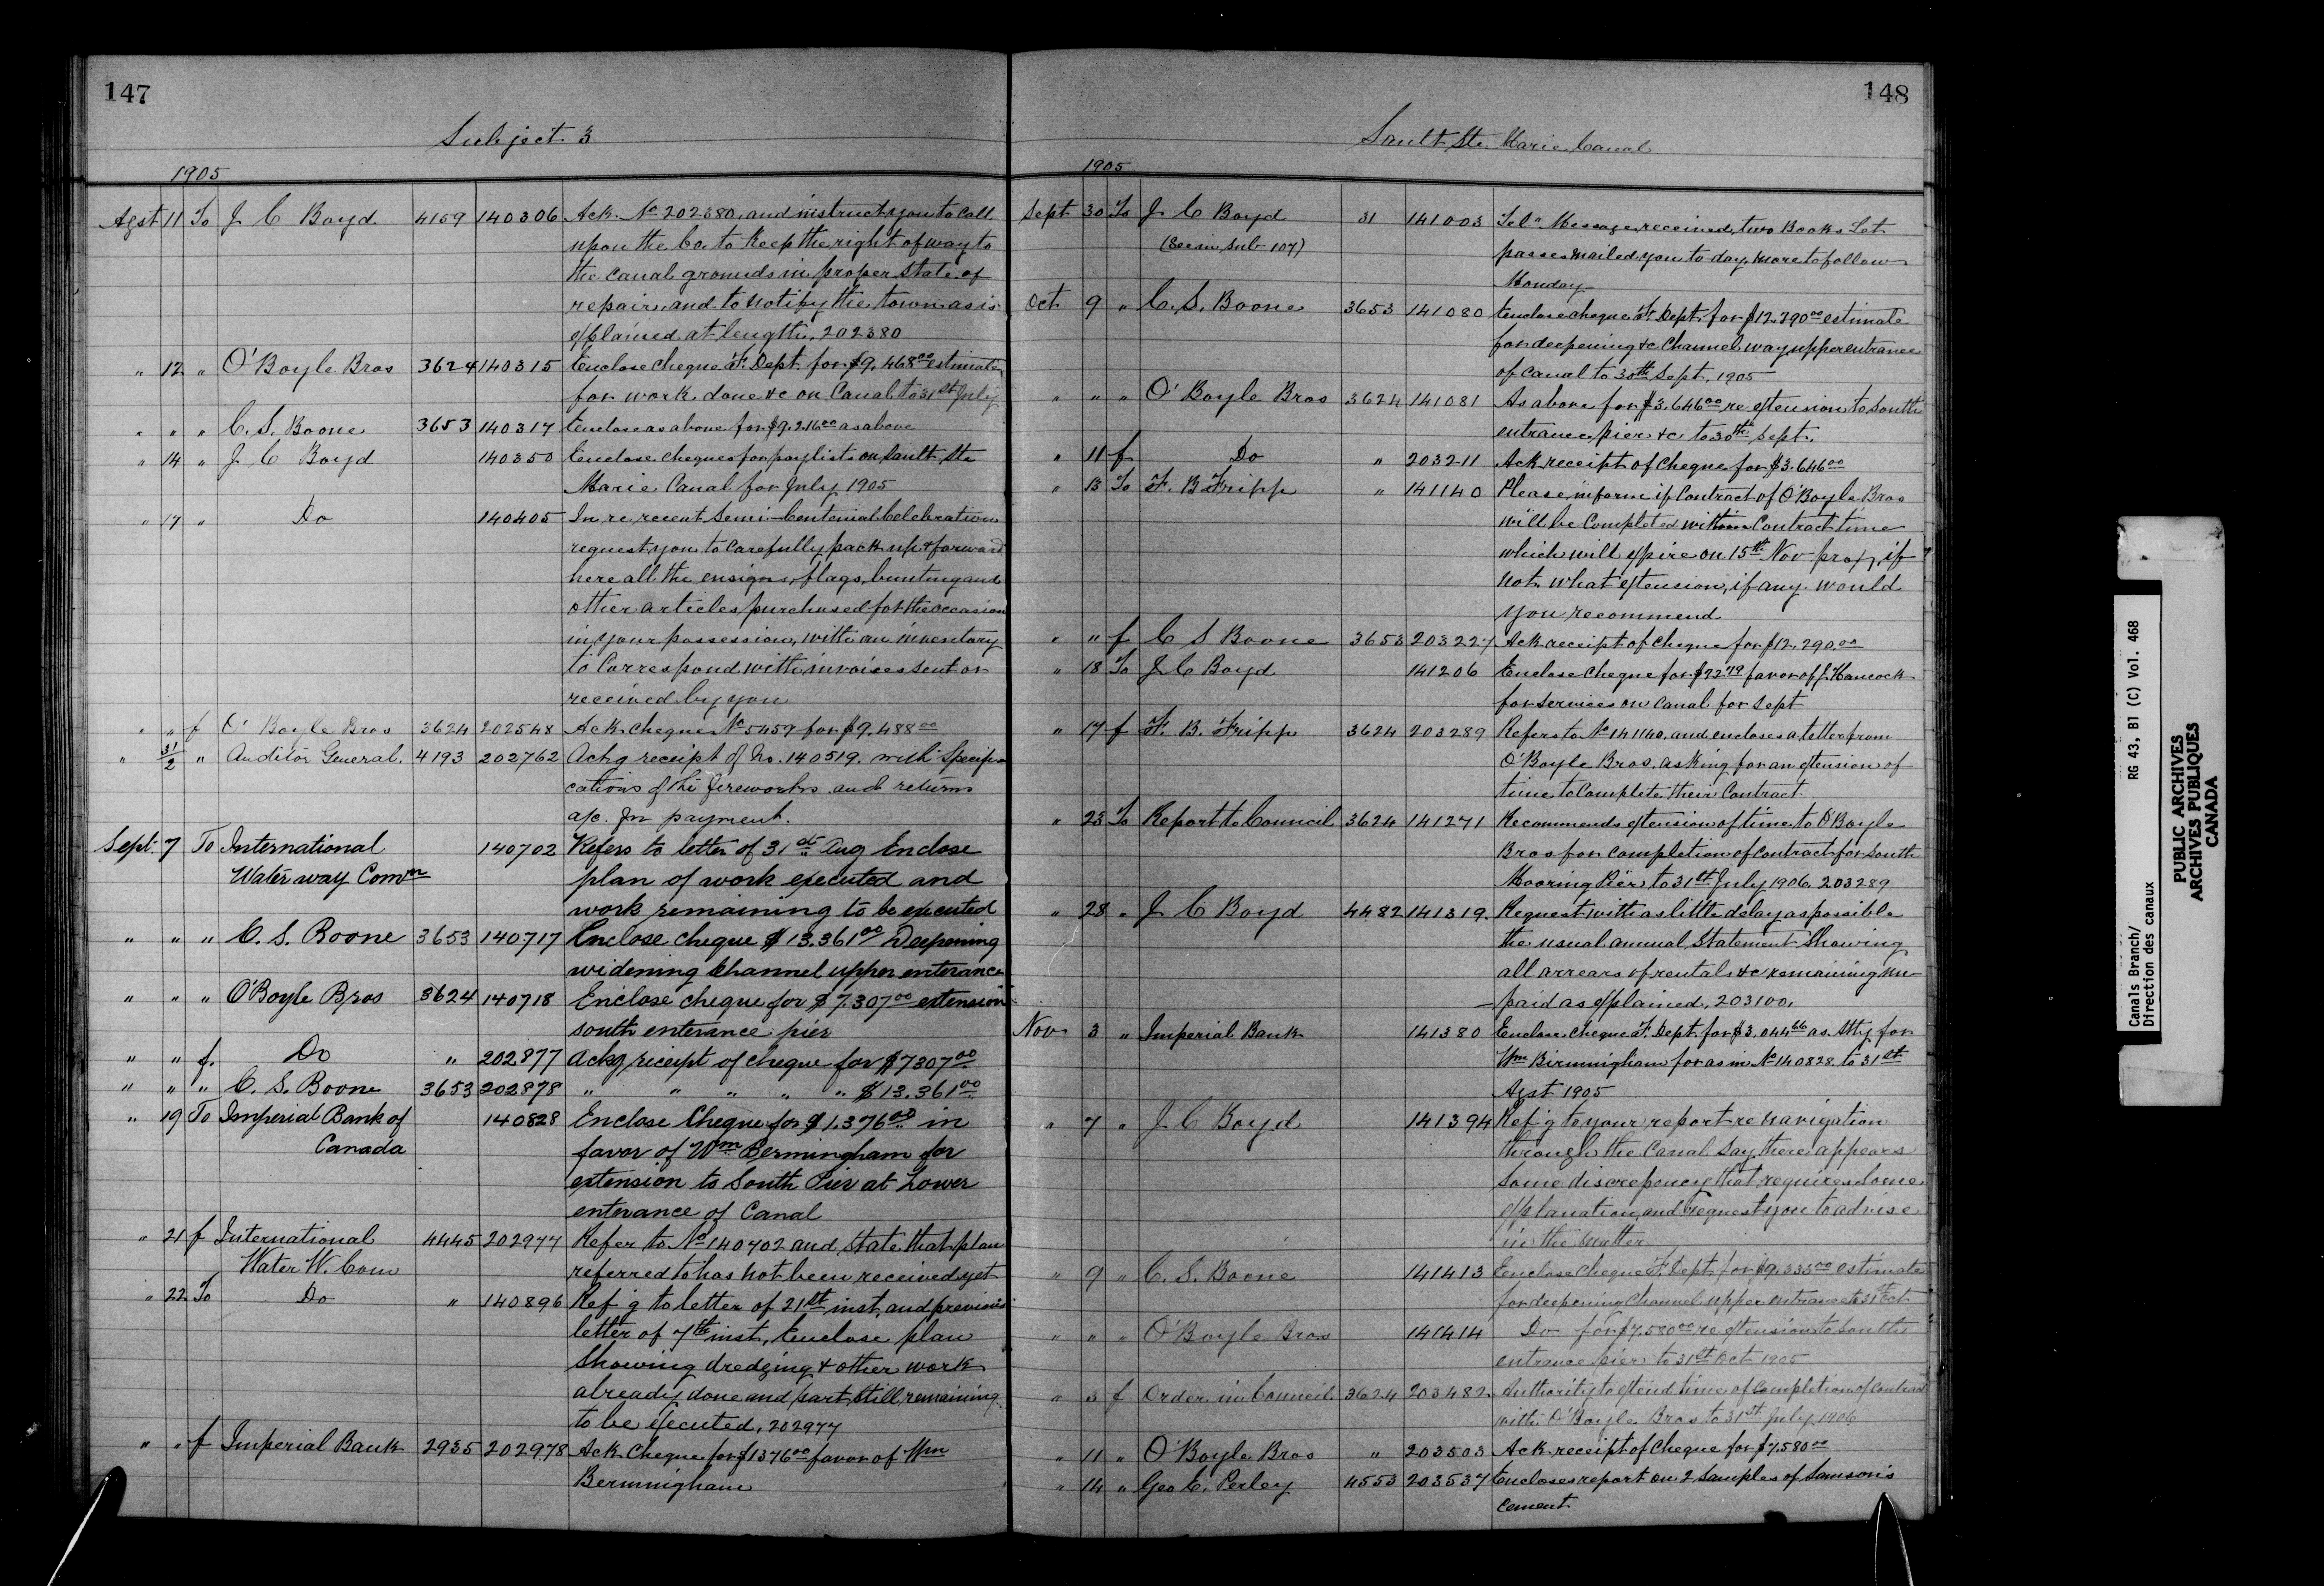 147
Subject 3
1905
Agst 11 To J C Boyd 4159 140306 Ack. No 202380, and instruct you to call
upon the Co. to keep the right of way to
the canal grounds in proper state of
repair, and to notify the town as is
explained at length. 202380
" 12 " O'Boyle Bros 3624 140315 Enclose cheque F. Dept. for $9.468.00 estimate
for work done &c on Canal to 31st July
" " " C. S. Boone 3653 140317 Enclose as above for $9.216.00 as above
" 14 " J C Boyd 140350 Enclose cheques for paylists on Sault Ste
Marie Canal for July 1905
" 17 " Do 140405 In re recent Semi-Centenial Celebration
request you to carefully pack up & forward
here all the ensigns, flags, bunting and
other articles purchased for the occasion
in your possession, with an inventory
to correspond with invoices sent or
received by you
" " f O' Boyle Bros 3624 202548 Ack cheque No 5459 for $9.488.00
" 31/2 " Auditor General. 4193 202762 Ackg receipt of No. 140519. with specifi-
cations of the fireworks and returns
a/c. for payment.
Sept. 7 To International 140702 Refers to letter of 31st Aug Enclose
Water way Comn plan of work executed and
work remaining to be executed
" " " C. S. Boone 3653 140717 Enclose cheque $13.361.00 Deepening
widening channel upper enterance
" " " O'Boyle Bros 3624 140718 Enclose cheque for $7.307.00 extension
south enterance pier
" " f. Do " 202877 Ackg receipt of cheque for $7307.00
" " " C. S. Boone 3653 202878 " " " " " $13.361.00
" 19 To Imperial Bank of 140828 Enclose Cheque for $1.376.00 in
Canada favor of Wm Bermingham for
extension to South Pier at Lower
enterance of Canal
" 21 f International 4445 202977 Refer to No 140702 and state that plan
Water W. Com referred to has not been received yet
" 22 To Do " 140896 Ref'g to letter of 21st inst, and previous
letter of 7th inst, Enclose plan
showing dredging & other work
already done and part still remaining
to be executed, 202977
" " f Imperial Bank 2935 202978 Ack Cheque for $1376.00 favor of Wm
Bermingham
148
Sault Ste. Marie Canal
1905
Sept 30 To J C Boyd 31 141003 Tel" Message received, two Books Let
(See in Sub 107) passes mailed you to-day, more to follow
Monday
Oct. 9 " C. S. Boone 3653 141080 Enclose cheque F. Dept. for $12.290.00 estimate
for deepening &c Channel way upper entrance
of Canal to 30th Sept. 1905
" " " O'Boyle Bros 3624 141081 As above for $3.646.00 re extension to South
entrance pier &c to 30th Sept.
" 11 f Do " 203211 Ack receipt of cheque for $3.646.00
" 13 To F. B Fripp " 141140 Please inform if Contract of O'Boyle Bros
will be completed within Contract time
which will expire on 15th Nov prox, if
not what extension, if any would
you recommend
" " f C S Boone 3653 203227 Ack receipt of cheque for $12.290.00
" 18 To J C Boyd 141206 Enclose cheque for favor of J. Hancock
for services on canal for Sept
" 17 f F. B. Fripp 3624 203289 Refers to No 141140, and encloses a letter from
O'Boyle Bros. asking for an extension of
time to complete their Contract
" 23 To Report to Council 3624 141271 Recommends extension of time to O'Boyle
Bros for completion of contract for South
Mooring Pier to 31st July 1906. 203289
" 28 " J C Boyd 4482 141319. Request with as little delay as possible
the usual annual Statement showing
all arrears of rentals &c remaining un-
-paid as explained, 203100,
Nov 3 " Imperial Bank 141380 Enclose cheque F. Dept. for $3.044.66 as Atty for
Wm Birmingham for as in No 140828 to 31st
Agst 1905
" 7 " J C Boyd 141394 Ref'g to your report re navigation
through the Canal Say there appears
some discrepancy that requires some
explanation, and request you to advise
in the matter
" 9 " C. S. Boone 141413 Enclose cheque F. Dept. for $9.335.00 estimate
for deepening channel upper entrance to 31st Oct
" " " O'Boyle Bros 141414 Do for $7.580.00 re extension to South
entrance pier to 31st Oct 1905
" 3 f Order in Council 3624 203482 Authority to extend time of completion of contract
with O'Boyle Bros to 31st July 1906
" 11 " O'Boyle Bros " 203503 Ack receipt of cheque for $7.580.00
" 14 " Geo E. Perley 4553 203537 Encloses report on 2 Samples of Samson's
cement
Canals Branch/
Direction des canaux
RG 43, B1 (C) Vol. 468
PUBLIC ARCHIVES
ARCHIVES PUBLIQUES
CANADA